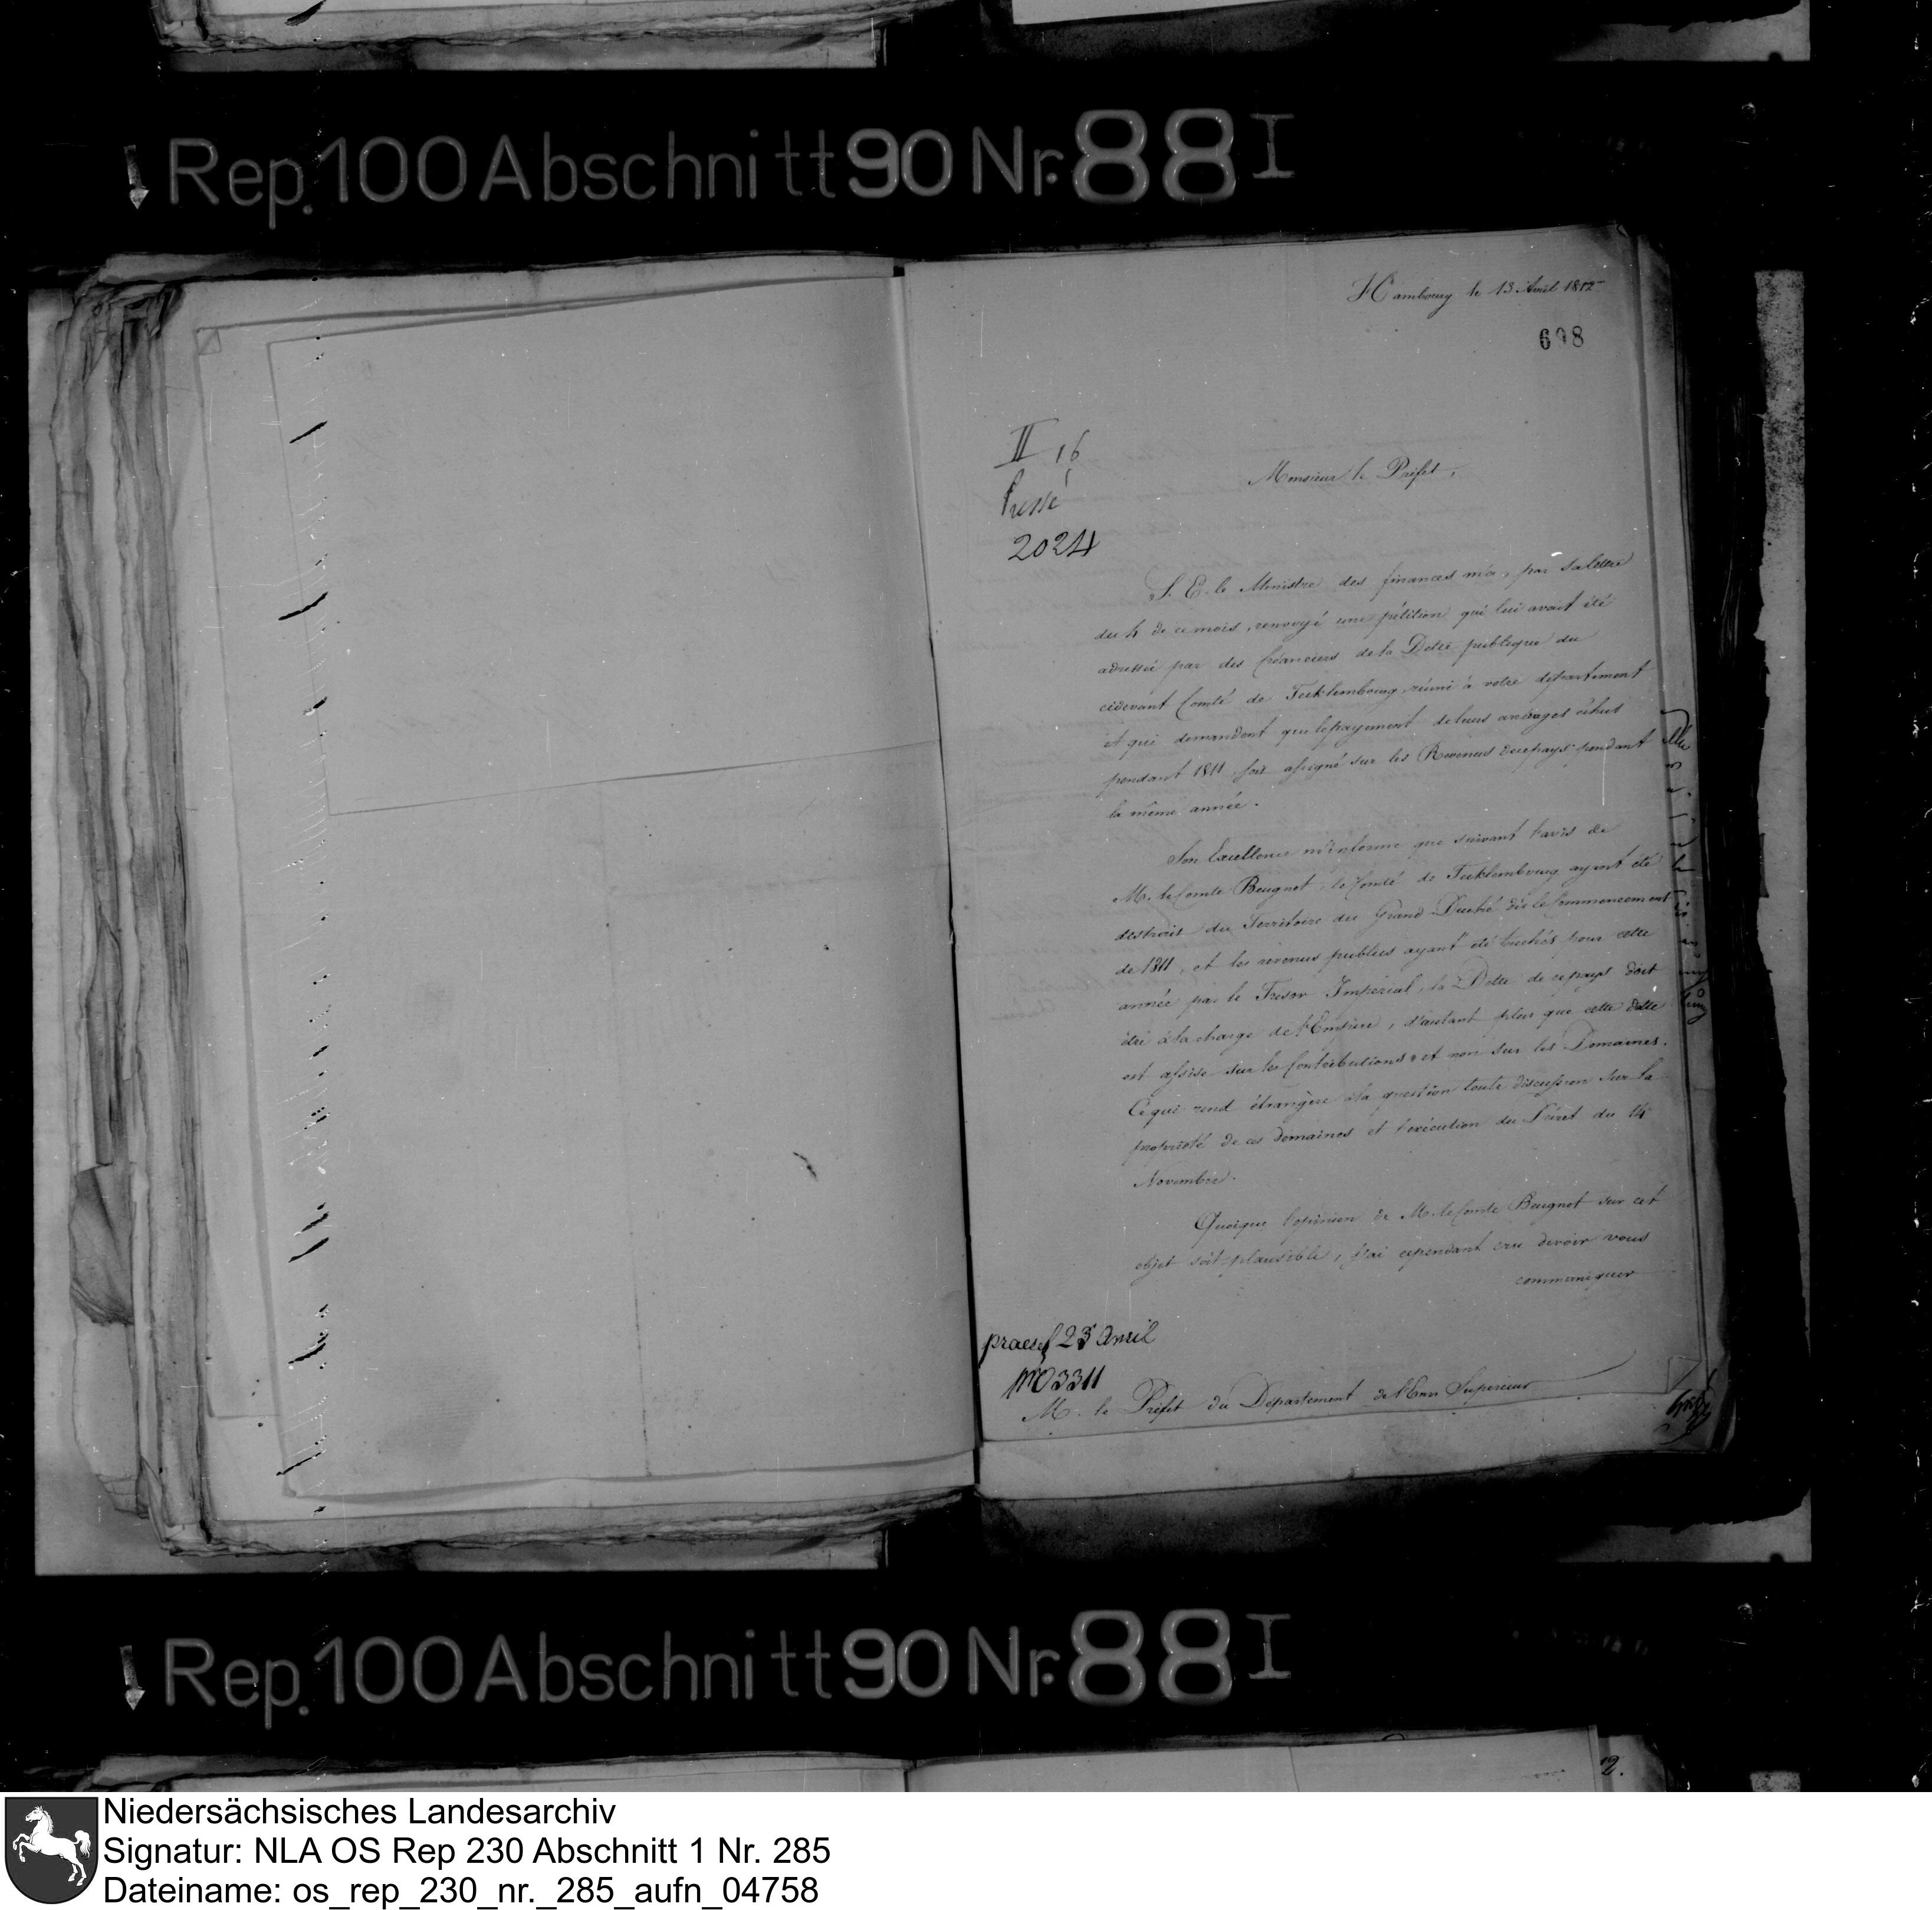 Rep. 100 Abschnitt 90 Nr. 88 I
Hambourg le 13 Avril 1812
698
II 16
Pressé
2024
Monsieur le Préfet,
S. E. le Ministre des finances m'a, par sa lettre
du 4 de ce mois, renvoyé une pétition qui lui avait été
adressée par des Créanciers de la Dette publique du
cidevant Comté de Tecklembourg, réuni à votre département
et qui demandent que le payement de leurs arrérages échus
pendant 1811, soit assigné sur les Revenus du pays pendant
la même année.
Son Excellence m'informe que suivant l'avis de
M. le Comte Beugnot, le Comté de Tecklembourg ayant été
distrait du Territoire du Grand-Duché dès le Commencement
de 1811, et les revenus publics ayant été touchés pour cette
année par le Trésor Impérial, la Dette de ce pays doit
être à la charge de l'Empire, d'autant plus que cette dette
est assise sur les Contributions et non sur les Domaines.
Ce qui rend étrangère à la question toute discussion sur la
propriété de ces domaines et l'exécution du Décret du 14
Novembre.
Quoique l'opinion de M. le Comte Beugnot sur cet
objet soit plausible, j'ai cependant cru devoir vous
communiquer
praes. 23 Avril
No 3311
M. le Préfet du Département de l'Ems Supérieur
Rep. 100 Abschnitt 90 Nr. 88 I
2.
Niedersächsisches Landesarchiv
Signatur: NLA OS Rep 230 Abschnitt 1 Nr. 285
Dateiname: os_rep_230_nr._285_aufn_04758